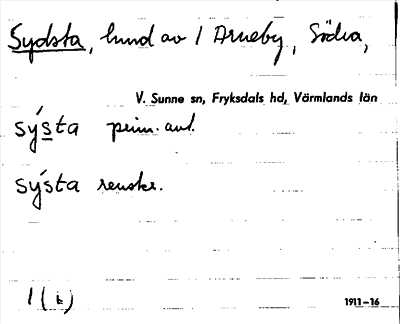 Sydsta, hund av / Arneby, Södra,
V. Sunne sn, Fryksdals hd, Värmlands län
sýsta prim. aut.
sýsta renskr.
1 (k)
1911–16